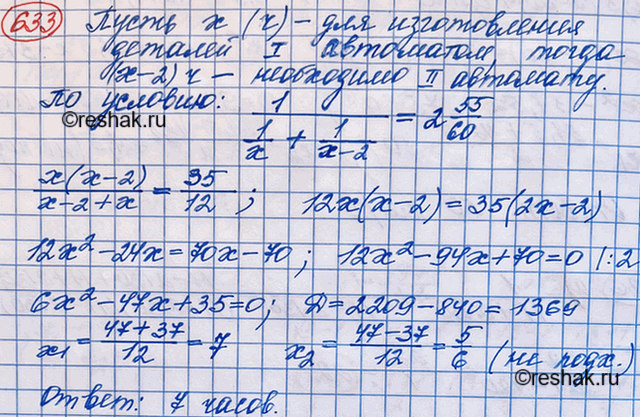 633 Пусть x (ч) – для изготовления
деталей I автоматом, тогда
(x-2) ч – необходимо II автомату.
По условию: 1/(1/x + 1/(x-2)) = 2 55/60
©reshak.ru
x(x-2)/(x-2+x) = 35/12 ; 12x(x-2)=35(2x-2)
12x²-24x=70x-70; 12x²-94x+70=0 |:2
6x²-47x+35=0; Д=2209-840=1369
x₁ = (47+37)/12 = 7 x₂ = (47-37)/12 = 5/6 (не подх.)
©reshak.ru
Ответ: 7 часов.